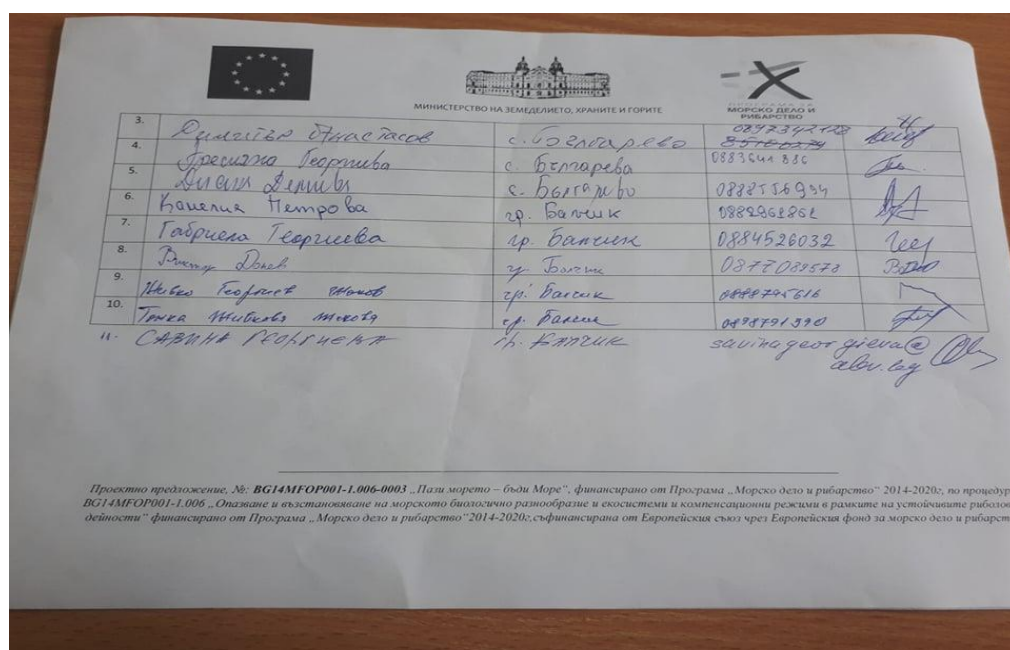 МИНИСТЕРСТВО НА ЗЕМЕДЕЛИЕТО, ХРАНИТЕ И ГОРИТЕ
ПРОГРАМА ЗА
МОРСКО ДЕЛО И
РИБАРСТВО
3. Димитър Анастасов с. Българево 0897342128
4. Георгиева с. Българево 0883644886
5. Диана с. Българево
6. Камелия Петрова гр. Балчик 0882962862
7. Габриела Георгиева гр. Балчик 0884526032
8. Виктор Донев гр. Балчик 0877089578
9. Живко Георгиев Жеков гр. Балчик 0888795616
10. Тонка Живкова Жекова гр. Балчик 0898791390
11. САВИНА ГЕОРГИЕВА гр. БАЛЧИК savinageorgieva@
abv.bg
Проектно предложение, №: BG14MFOP001-1.006-0003 „Пази морето – бъди Море“, финансирано от Програма „Морско дело и рибарство“ 2014-2020г, по процедур
BG14MFOP001-1.006 „Опазване и възстановяване на морското биологично разнообразие и екосистеми и компенсационни режими в рамките на устойчивите риболов
дейности“ финансирано от Програма „Морско дело и рибарство“2014-2020г,съфинансирана от Европейския съюз чрез Европейския фонд за морско дело и рибарст